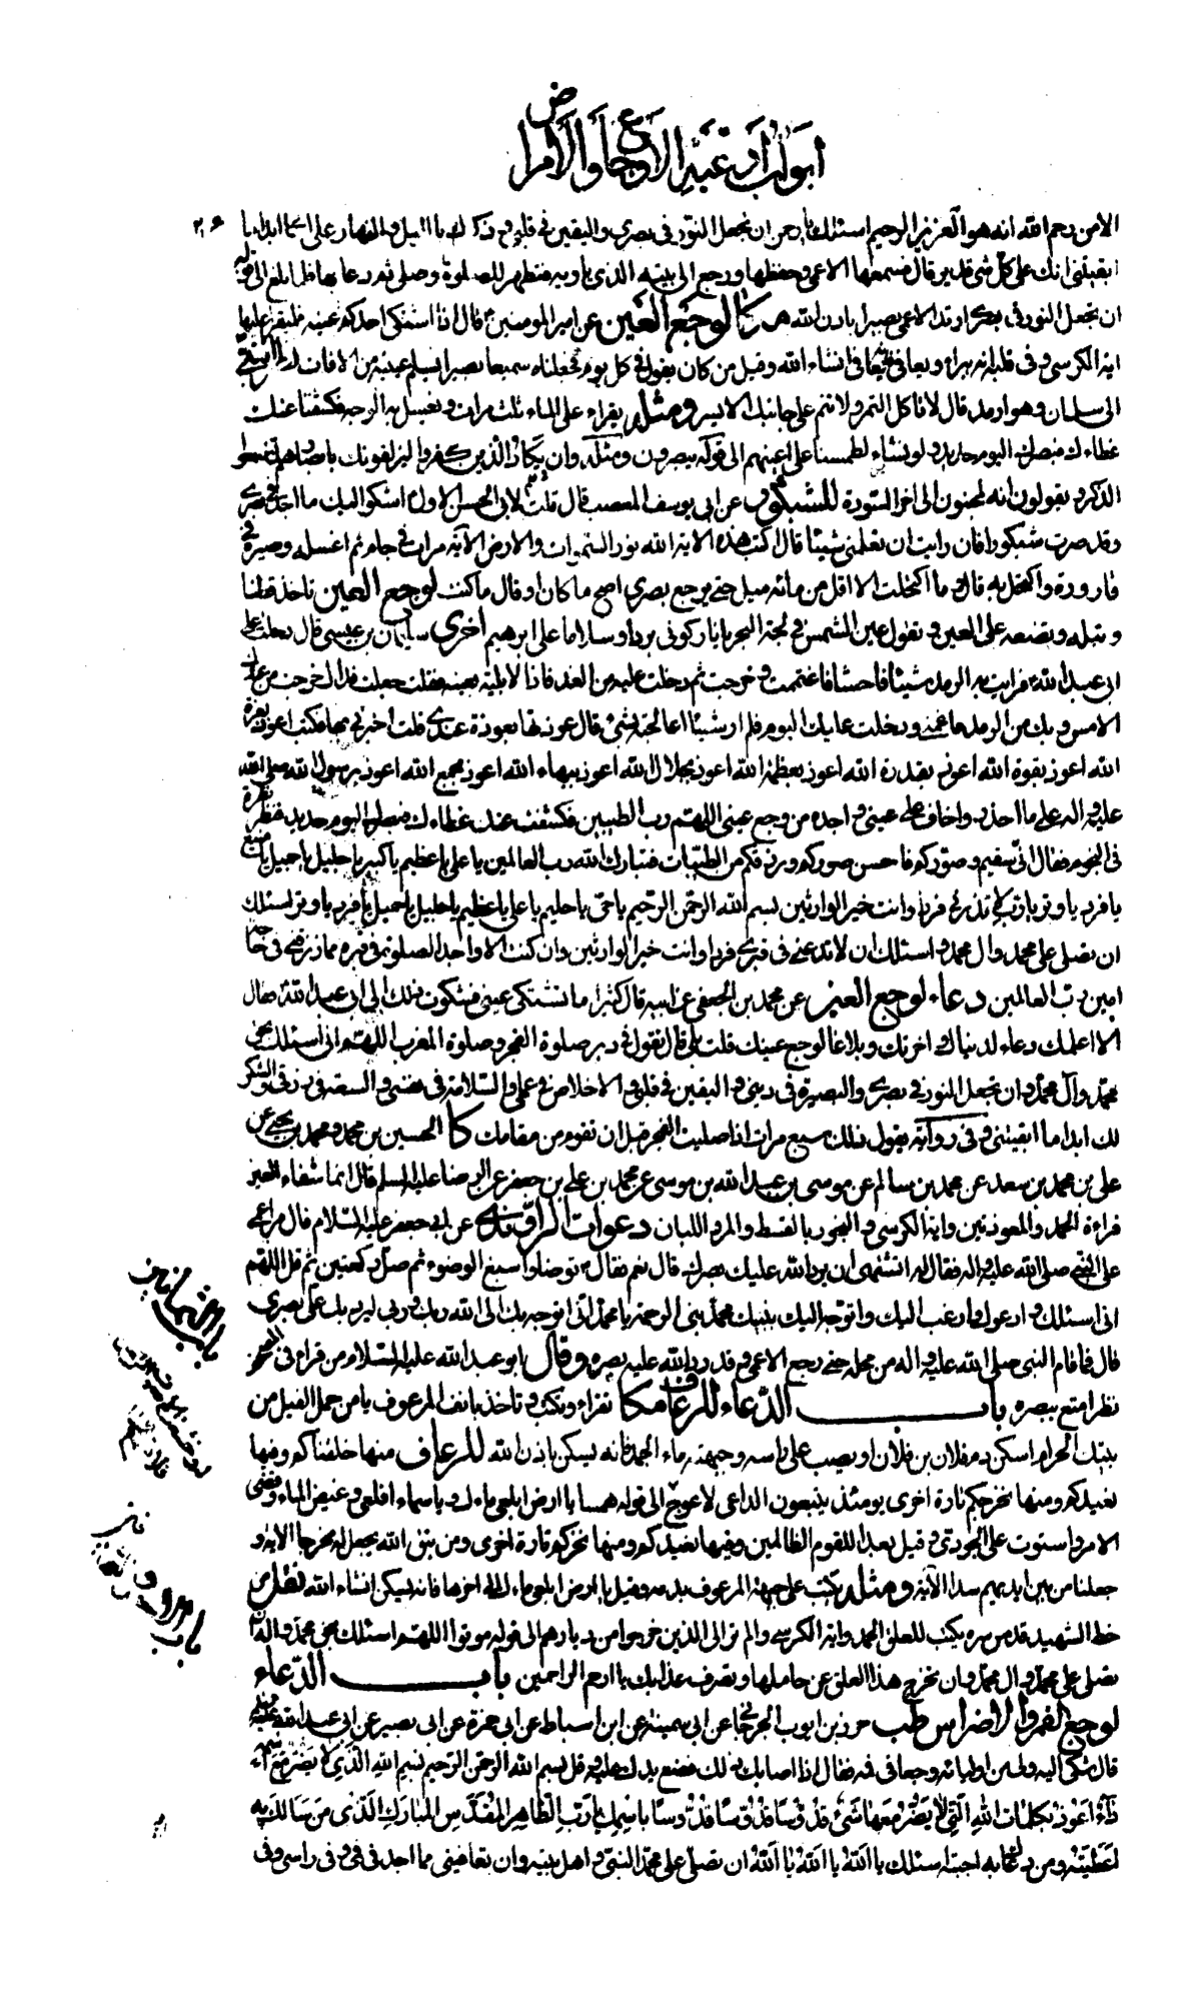 أبواب أدعية الأوجاع والأمراض
٢٠۶
الا من رحم الله انه هو العزيز الرحيم اسئلك يا رحمن ان تجعل النور في بصري واليقين في قلبي وذكرك بالليل والنهار على لسانى ابدا ما
ابقيتنى انك على كل شئ قدير قال فسمعها الاعمى وحفظها ورجع الى بيته الذي ياويه فتطهر للصلوة وصلى ثم دعا بها فلما بلغ الى قوله
ان تجعل النور في بصري ارتد الاعمى بصيرا باذن الله مكا لوجع العين عن امير المومنين قال اذا اشتكى احدكم عينه فليقرا عليها
اية الكرسى وفى قلبه انه يبراء ويعافى فانه يعافى انشاء الله وقيل من كان يقول في كل يوم فجعلناه سميعا بصيرا يسلم عينيه من الافات
الى سلمان وهو ارمد قال لا تاكل التمر ولا تنم على جانبك الايسر ومثله يقراء على الماء ثلث مرات ويغسل به الوجه فكشفنا عنك
غطاءك فبصرك اليوم حديد ولو نشاء لطمسنا على اعينهم الى قوله يبصرون ومثله وان يكاد الذين كفروا ليزلقونك بابصارهم لما سمعوا
الذكر ويقولون انه لمجنون الى اخر السورة للشبكور عن ابى يوسف المعصب قال قلت لابى الحسن الاول اشكو اليك ما اجد في بصري
وقد صرت شبكورا فان رايت ان تعلمنى شيئا قال اكتب هذه الاية الله نور السموات والارض الآية مرات في جام ثم اغسله وصيره في
قارورة واكتحل به قال وما اكتحلت الا اقل من مائة ميل حتى رجع بصري اصح ما كان او قال ما كنت لوجع العين تاخذ قطنا
وتبله وتضعه على العين وتقول عين الشمس في لجة البحر يا نار كونى بردا وسلاما على ابرهيم اخرى سليمان بن عيسى قال دخلت على
ابى عبد الله فرايت به الرمد شيئا فاحشا فاغتممت وخرجت ثم دخلت عليه من الغد فاذا لا بلية بعينه فقلت جعلت فداك خرجت من عندك
الامس وبك من الرمد ما غمنى ودخلت عليك اليوم فلم ار شيئا اعالجته بشئ قال عوذتها بعوذة عندي قلت اخبرنى بها فكتب اعوذ بعزة
الله اعوذ بقوة الله اعوذ بقدرة الله اعوذ بعظمة الله اعوذ بجلال الله اعوذ ببهاء الله اعوذ بجمع الله اعوذ برسول الله صلى الله
عليه واله على ما احذر واخاف على عينى واجده من وجع عينى اللهم رب الطيبين فكشفت عنك غطاءك فبصرك اليوم حديد فنظر نظرة
فى النجوم فقال انى سقيم وصوركم فاحسن صوركم ورزقكم من الطيبات فتبارك الله رب العالمين يا على يا عظيم يا كبير يا جليل يا جميل يا
يا فرد يا وتر يا رب لا تذرنى فردا وانت خير الوارثين بسم الله الرحمن الرحيم يا حى يا حليم يا على يا عظيم يا جليل يا جميل يا فرد يا وتر اسئلك
ان تصلى على محمد وال محمد واسئلك ان لا تدعنى فى قبري فردا وانت خير الوارثين وان كنت
امين رب العالمين دعاء لوجع العين عن محمد بن الجعفى عن ابيه قال كثيرا ما تشتكى عينى فشكوت ذلك الى ابى عبد الله فقال
الا اعلمك دعاء لدنياك واخرتك وبلاغا لوجع عينك قلت بلى قال تقول في دبر صلوة الفجر وصلوة المغرب اللهم انى اسئلك بحق
محمد وآل محمد وان تجعل النور في بصري والبصيرة في دينى واليقين في قلبى والاخلاص في عملى والسلامة في نفسى والسعة في رزقى والشكر
لك ابدا ما ابقيتنى وفى رواية يقول ذلك سبع مرات اذا صليت الفجر قبل ان تقوم من مقامك كا الحسين بن محمد ومحمد بن يحيى عن
على بن محمد بن سعد عن محمد بن سالم عن موسى بن عبد الله بن موسى عن محمد بن على بن جعفر عن الرضا عليه السلم قال انما شفاء العين
قراءة الحمد والمعوذتين واية الكرسى والبخور بالقسط والمر واللبان دعوات الراوندي عن ابى جعفر عليه السلام قال مر اعمى
على النبى صلى الله عليه واله فقال له اتشتهى ان يرد الله عليك بصرك قال نعم فقال توضا واسبغ الوضوء ثم صل ركعتين ثم قل اللهم
انى اسئلك وادعوك وارغب اليك واتوجه اليك بنبيك محمد نبى الرحمة يا محمد انى اتوجه بك الى الله ربك وربى ليرد بك على بصري
قال فما قام النبى صلى الله عليه واله من محله حتى رجع الاعمى وقد رد الله عليه بصره وقال ابو عبد الله عليه السلام من قراء في المصحف
نظرا متع ببصره باب الدعاء للرعاف مكا تقراء وتكتب وتاخذ بانف المرعوف يا من حمل الفيل من
بيتك الحرام اسكن دم فلان بن فلان او يصب على راسه وجبهته ماء الجمد فانه يسكن باذن الله للرعاف منها خلقناكم وفيها
نعيدكم ومنها نخرجكم تارة اخرى يومئذ يتبعون الداعى لا عوج الى قوله همسا يا ارض ابلعى ماءك ويا سماء اقلعى وغيض الماء وقضى
الامر واستوت على الجودى وقيل بعدا للقوم الظالمين وفيها نعيدكم ومنها نخرجكم تارة اخرى ومن يتق الله يجعل له مخرجا الاية و
جعلنا من بين ايديهم سدا الآية ومثله يكتب على جبهة المرعوف بدمه وقيل يا ارض ابلعى ماءك الى اخرها فانه يسكن انشاء الله نقل من
خط الشهيد قدس سره يكتب للعلق الحمد واية الكرسى والم تر الى الذين خرجوا من ديارهم الى قوله موتوا اللهم اسئلك بحق محمد واله ان
تصلى على محمد وال محمد وان تخرج هذا العلق عن حاملها وتصرف عذابك يا ارحم الراحمين باب الدعاء
لوجع الفم والاضراس طب حرز بن ايوب الجرجانى عن ابى سمينة عن ابن اسباط عن ابى حمزة عن ابى بصير عن ابى عبد الله
قال شكى اليه ولى من اوليائه وجعا فى فمه فقال اذا اصابك ذلك فضع يدك عليه وقل بسم الله الرحمن الرحيم بسم الله الذى لا يضر مع اسمه
داء اعوذ بكلمات الله التى لا يضر معها شئ قدوسا قدوسا قدوسا باسمك يا رب الطاهر المقدس المبارك الذى من سالك به
اعطيته ومن دعاك به اجبته اسئلك يا الله يا الله يا الله ان تصلى على محمد النبى واهل بيته وان تعافينى مما اجد فى فمى وفى راسى وفى